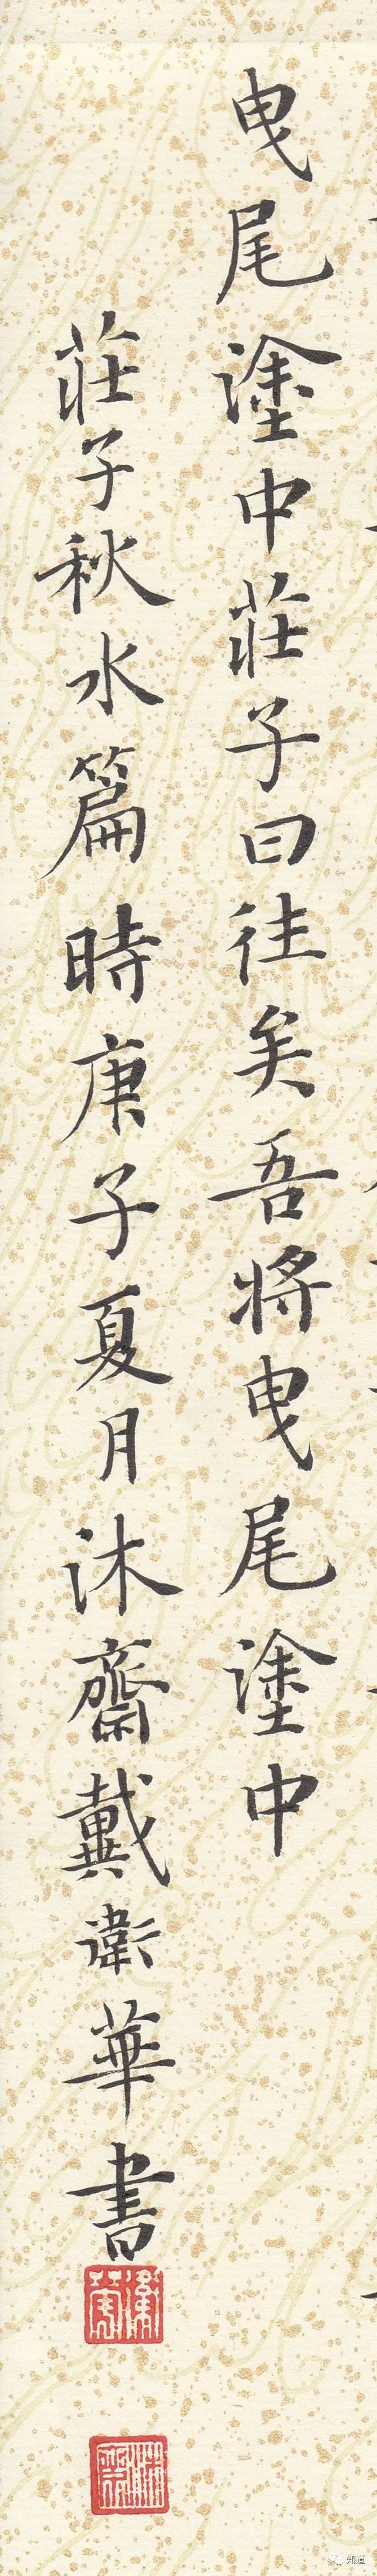 曳尾塗中莊子曰往矣吾將曳尾塗中
莊子秋水篇時庚子夏月沐齋戴衛華書
知道